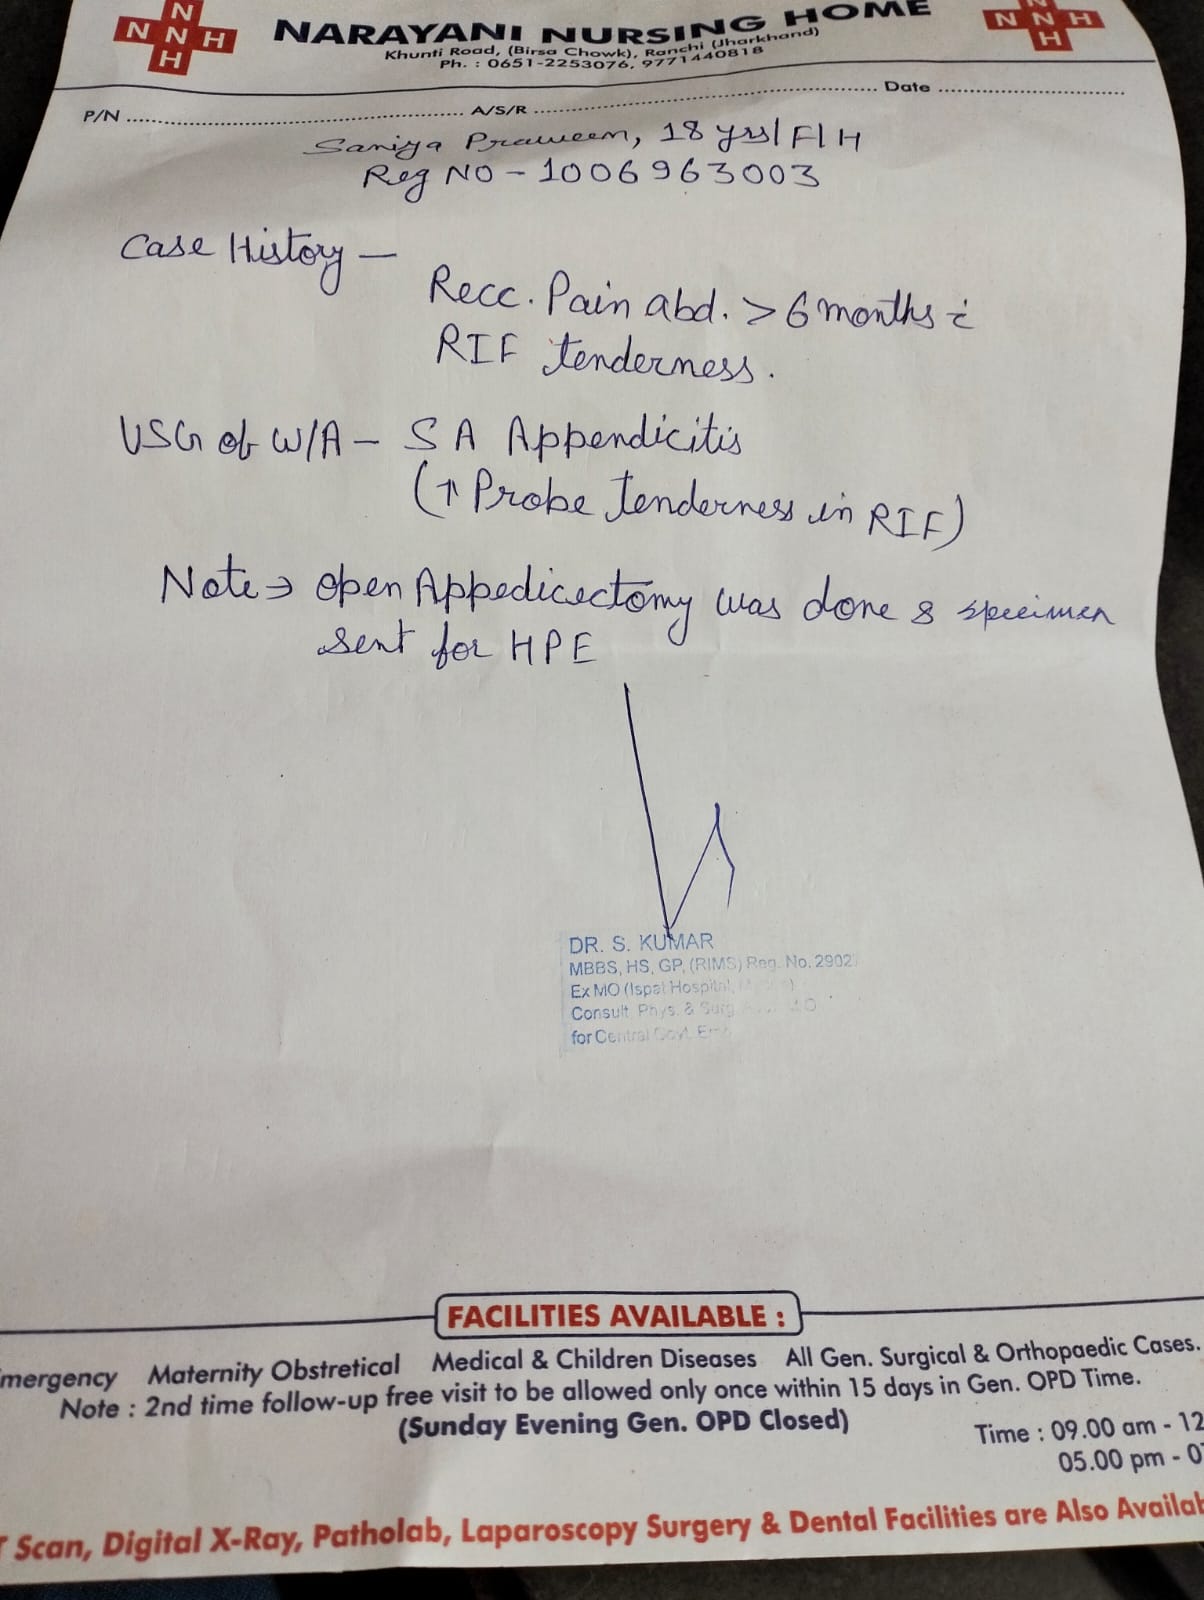 N
N N H
H
NARAYANI NURSING HOME
Khunti Road, (Birsa Chowk), Ranchi (Jharkhand)
Ph. : 0651-2253076, 9771440818
N
N N H
H
P/N ........ A/S/R ........ Date ........
Saniya Praween, 18 yrs/F/H
Reg NO - 1006963003
Case History —
Recc. Pain abd. > 6 months c̄
RIF tenderness.
USG of W/A - S A Appendicitis
(↑ Probe Tenderness in RIF)
Note → open Appedicectomy was done & specimen
sent for HPE
DR. S. KUMAR
MBBS, HS, GP, (RIMS) Reg. No. 2902
Ex MO (Ispat Hospital,
Consult. Phys. & Surg.
for Central Govt.
FACILITIES AVAILABLE :
mergency Maternity Obstretical Medical & Children Diseases All Gen. Surgical & Orthopaedic Cases.
Note : 2nd time follow-up free visit to be allowed only once within 15 days in Gen. OPD Time.
(Sunday Evening Gen. OPD Closed)
Time : 09.00 am - 12
05.00 pm - 0
T Scan, Digital X-Ray, Patholab, Laparoscopy Surgery & Dental Facilities are Also Availab